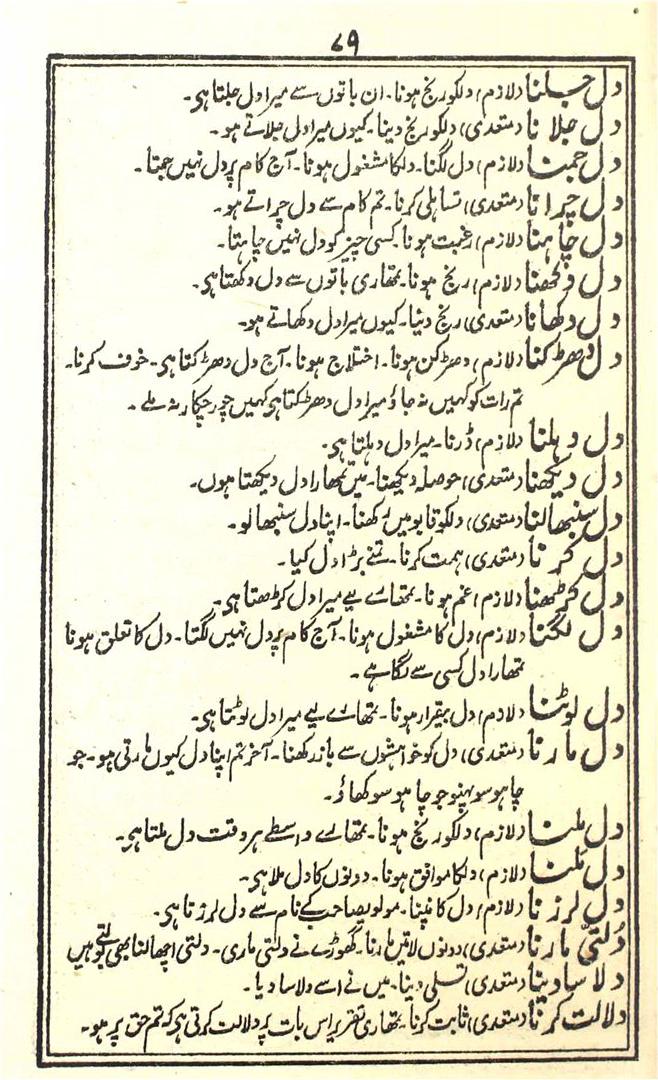 ۷۹
دل جلنا (لازم) دلکو رنج ہونا۔ ان باتوں سے میرا دل جلتا ہی۔
دل جلانا (متعدی) دلکو رنج دینا۔ کیوں میرا دل جلاتے ہو۔
دل جمنا (لازم) دل لگنا۔ دلکا مشغول ہونا۔ آج کام پر دل نہیں جمتا۔
دل چرانا (متعدی) تساہلی کرنا۔ تم کام سے دل چراتے ہو۔
دل چاہنا (لازم) رغبت ہونا۔ کسی چیز کو دل نہیں چاہتا۔
دل دکھنا (لازم) رنج ہونا۔ تمھاری باتوں سے دل دکھتا ہی۔
دل دکھانا (متعدی) رنج دینا۔ کیوں میرا دل دکھاتے ہو۔
دل دھڑکنا (لازم) دھڑکن ہونا۔ اختلاج ہونا۔ آج دل دھڑکتا ہی۔ خوف کرنا۔
تم رات کو کہیں نہ جاؤ میرا دل دھڑکتا ہی کہیں چور چکار نہ ملے۔
دل دہلنا (لازم) ڈرنا۔ میرا دل دہلتا ہی۔
دل دیکھنا (متعدی) حوصلہ دیکھنا۔ میں تمھارا دل دیکھتا ہوں۔
دل سنبھالنا (متعدی) دلکو قابو میں رکھنا۔ اپنا دل سنبھالو۔
دل کرنا (متعدی) ہمت کرنا۔ تمنے بڑا دل کیا۔
دل کڑھنا (لازم) غم ہونا۔ تمھارے لیے میرا دل کڑھتا ہی۔
دل لگنا (لازم) دل کا مشغول ہونا۔ آج کام پر دل نہیں لگتا۔ دل کا تعلق ہونا
تمھارا دل کسی سے لگا ہے۔
دل لوٹنا (لازم) دل بیقرار ہونا۔ تمھارے لیے میرا دل لوٹتا ہی۔
دل مارنا (متعدی) دل کو خواہشوں سے باز رکھنا۔ آخر تم اپنا دل کیوں مارتی ہو۔ جو
چاہو سو پہنو جو چاہو سو کھاؤ۔
دل ملنا (لازم) دلکو رنج ہونا۔ تمھارے واسطے ہر وقت دل ملتا ہی۔
دل مِلنا (لازم) دلکا موافق ہونا۔ دونوں کا دل ملا ہی۔
دل لرزنا (لازم) دل کانپنا۔ مولویصاحب کے نام سے دل لرزتا ہی۔
دُلتّی مارنا (متعدی) دونوں لاتیں مارنا۔ گھوڑے نے دلتی ماری۔ دلتی اچھالنا بھی بولتے ہیں
دلاسا دینا (متعدی) تسلی دینا۔ میں نے اسے دلاسا دیا۔
دلالت کرنا (متعدی) ثابت کرنا۔ تمھاری تقریر اس بات پر دلالت کرتی ہی کہ تم حق پر ہو۔